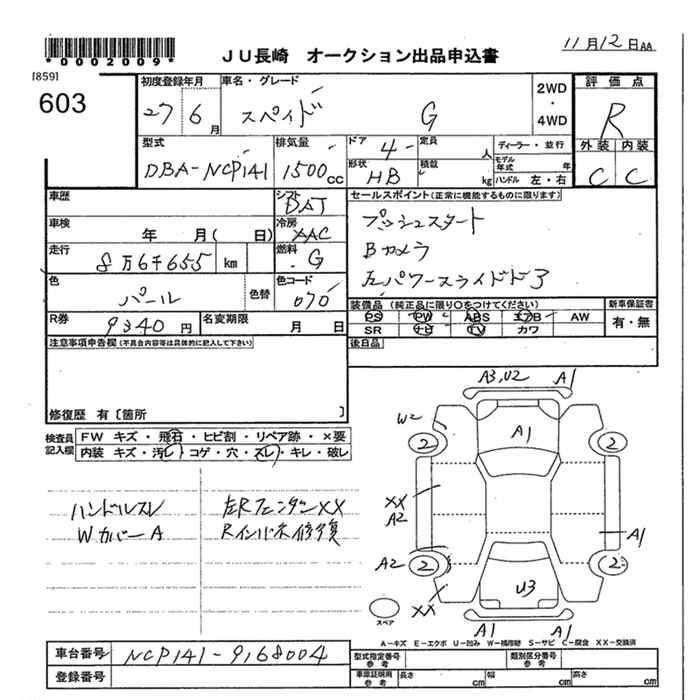 *0002009*
JU長崎 オークション出品申込書
11月12日AA
[859]
603
初度登録年月
27 6月
車名・グレード
スペイド G
2WD
・
4WD
評価点
R
型式
DBA-NCP141
排気量
1500cc
ドア 4
定員 人
形状 HB
積載 kg
ディーラー・並行
モデル年式 年
ハンドル 左・右
外装 内装
C C
車歴
シフト DAT
車検 年 月( 日)
冷房 AAC
走行 8万6千655 km
燃料 G
色 パール
色替
色コード 070
R券 9340円
名変期限 月 日
セールスポイント(正常に機能するものに限ります)
プッシュスタート
Bカメラ
左パワースライドドア
装備品 (純正品に限り○をつけてください)
PS PW ABS エアB AW
SR ナビ TV カワ
新車保証書
有・無
後日品
注意事項申告欄(不具合内容等は具体的に記入して下さい)
修復歴 有〔箇所 〕
検査員記入欄
FW キズ・飛石・ヒビ割・リペア跡・×要
内装 キズ・汚レ・コゲ・穴・スレ・キレ・破レ
ハンドルスレ
WカバーA
左Rフェンダー XX
Rインパネ修復
A3,U2 A1
W2
2 A1 2
XX
A2
A1
A2 2 2
U3
XX
A1 A1
スペア
A-キズ E-エクボ U-凹み W-補修跡 S-サビ C-腐食 XX-交換済
車台番号 NCP141-9168004
登録番号
型式指定番号 参考
類別区分番号 参考
車庫証明用 参考
長さ cm
幅 cm
高さ cm